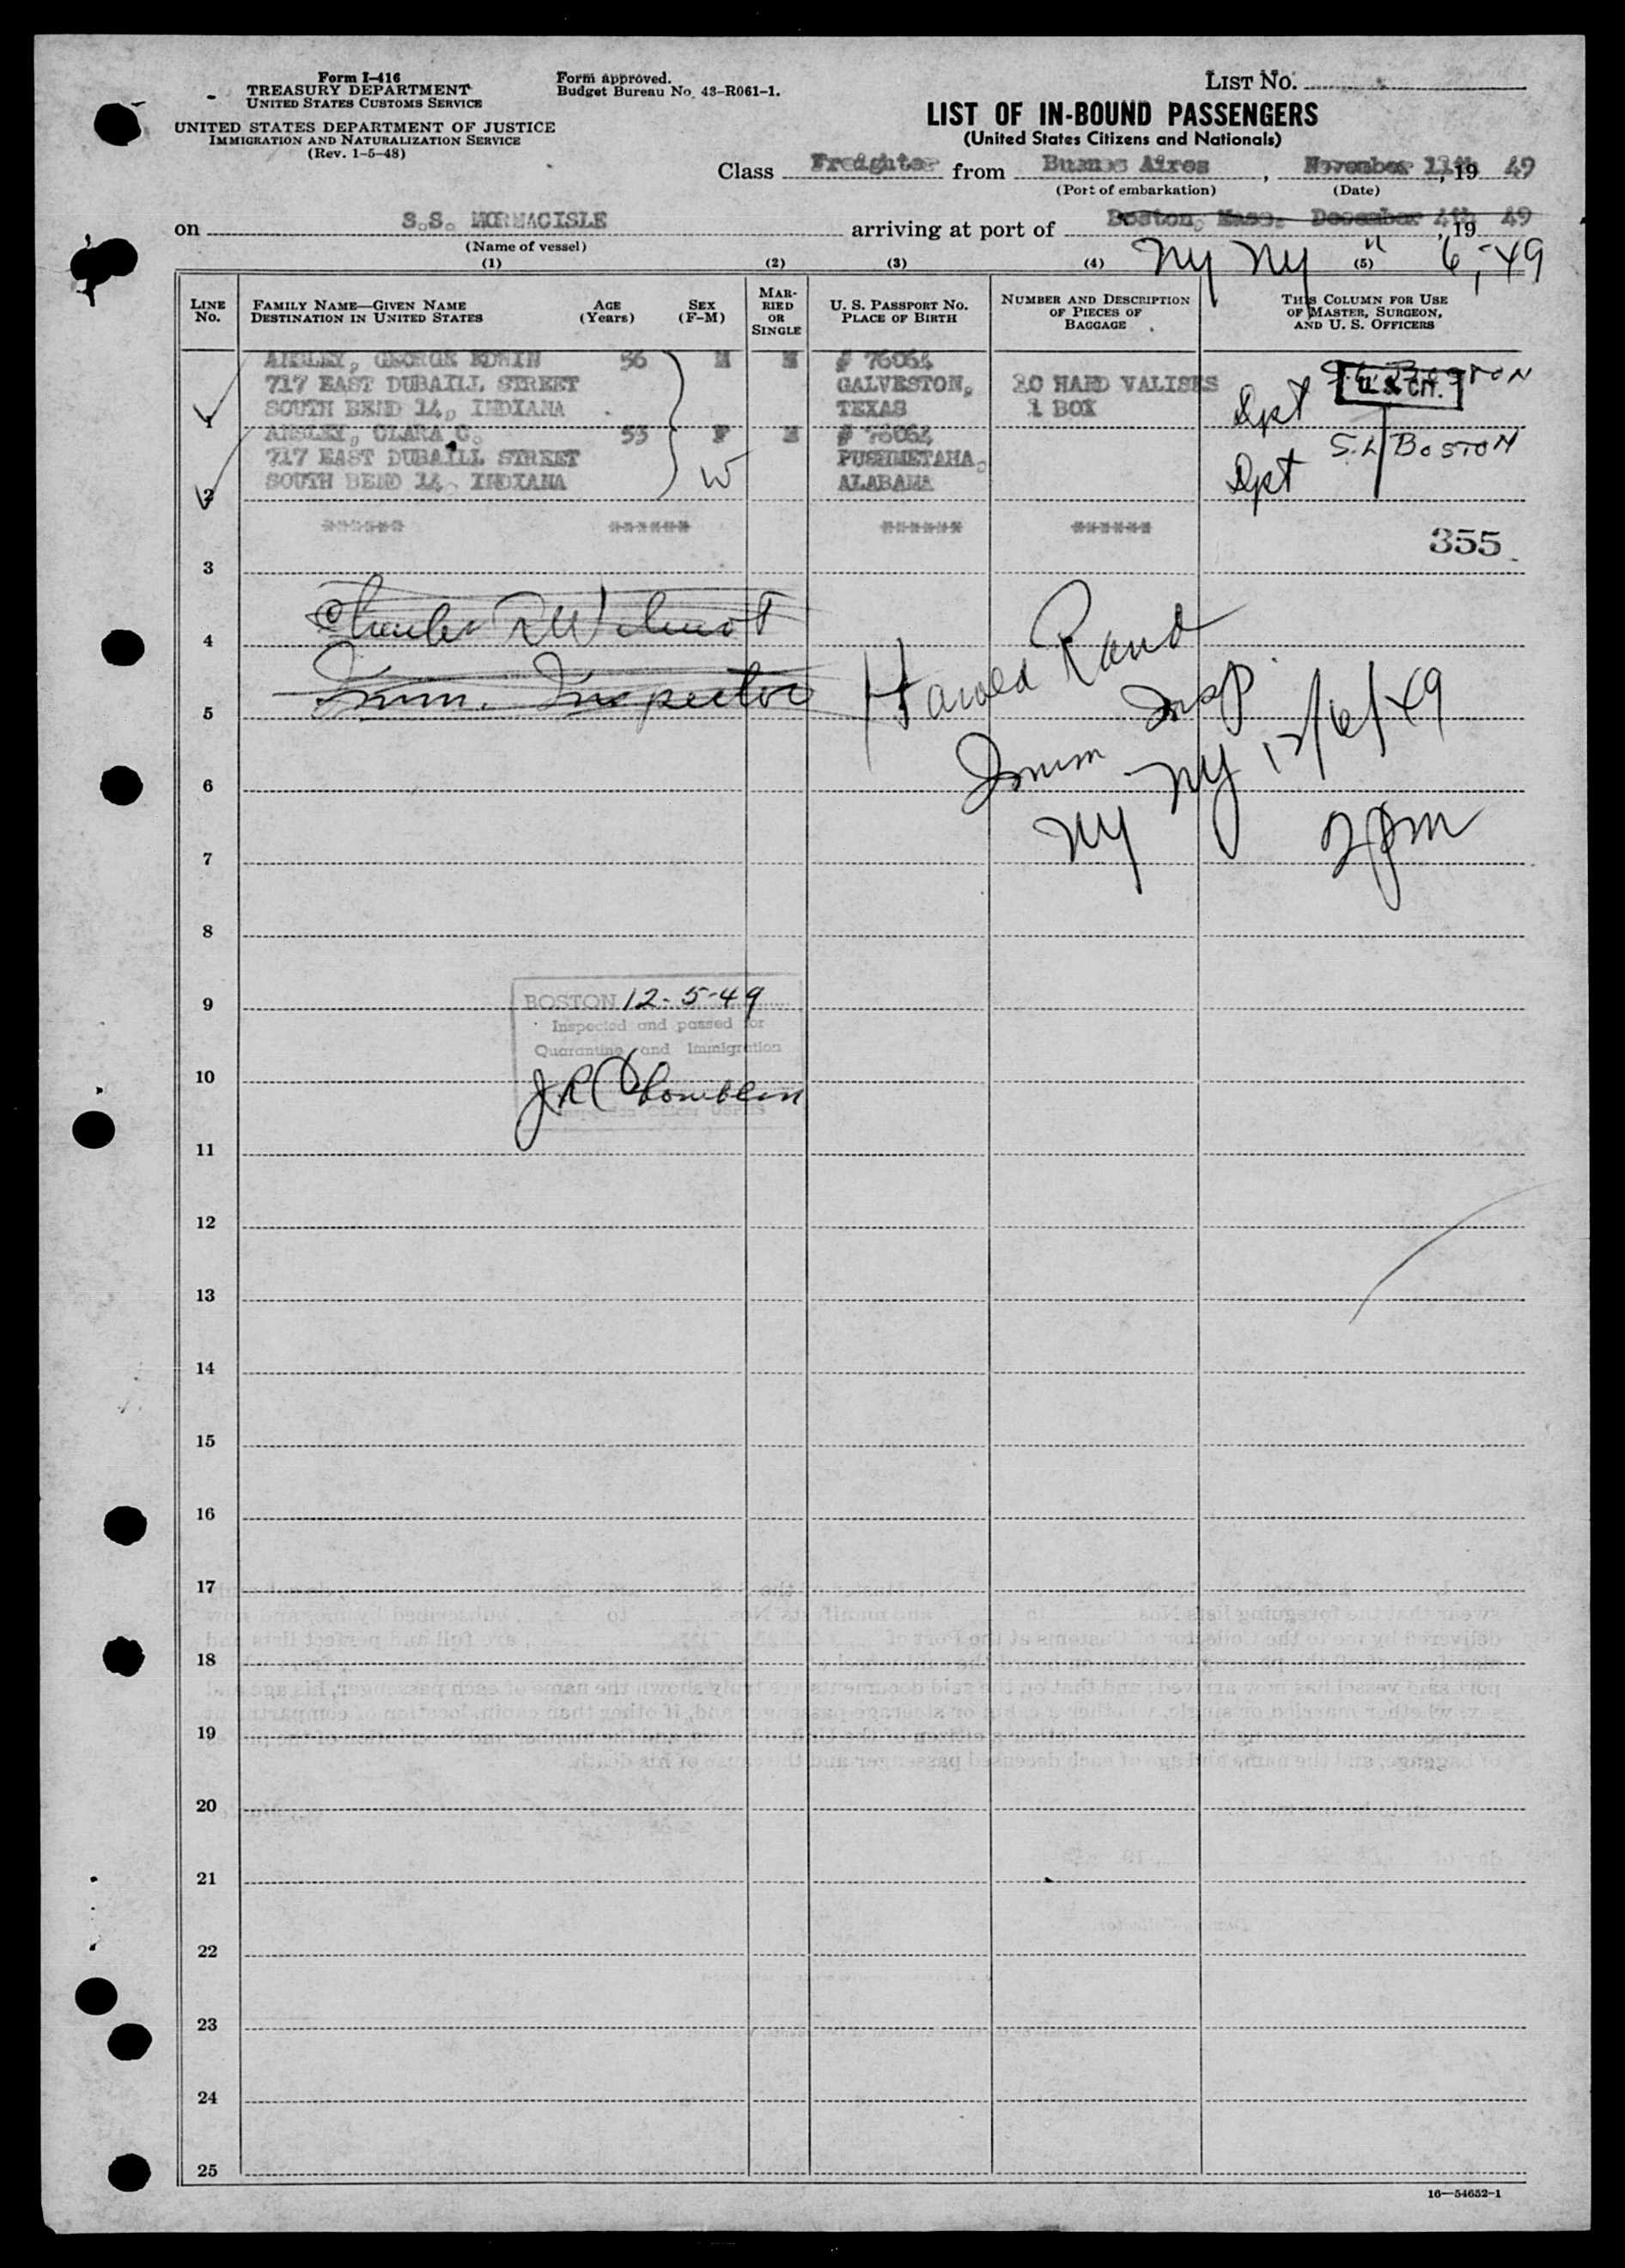 Form I-416
TREASURY DEPARTMENT
UNITED STATES CUSTOMS SERVICE
UNITED STATES DEPARTMENT OF JUSTICE
IMMIGRATION AND NATURALIZATION SERVICE
(Rev. 1-5-48)
Form approved.
Budget Bureau No. 43-R061-1.
LIST NO.
LIST OF IN-BOUND PASSENGERS
(United States Citizens and Nationals)
Class Freighter from Buenos Aires, November 11th, 19 49
(Port of embarkation) (Date)
on S.S. MORMACISLE arriving at port of Boston, Mass. December 4th, 19 49
(Name of vessel)
NY NY " 6, -49
(1) (2) (3) (4) (5)
LINE No. FAMILY NAME—GIVEN NAME DESTINATION IN UNITED STATES AGE (Years) SEX (F-M) MARRIED OR SINGLE U. S. PASSPORT NO. PLACE OF BIRTH NUMBER AND DESCRIPTION OF PIECES OF BAGGAGE THIS COLUMN FOR USE OF MASTER, SURGEON, AND U. S. OFFICERS
GEORGE EDWIN 56 M M # 76064
717 EAST DUBAILL STREET GALVESTON, 20 HAND VALISES
SOUTH BEND 14, INDIANA TEXAS 1 BOX
U.S. CIT.
1
CLARA C. 53 F M # 76064 S.L. BOSTON
717 EAST DUBAILL STREET PUSHMETAHA,
SOUTH BEND 14, INDIANA W ALABAMA
2
****** ****** ****** ******
355
3
4
Imm. Inspector
5
Harold Rand
Imm Insp
NY NY 12/6/49
2pm
6
7
8
9
BOSTON 12-5-49
Inspected and passed for
Quarantine and Immigration
10
11
12
13
14
15
16
17
18
19
20
21
22
23
24
25
16—54652-1